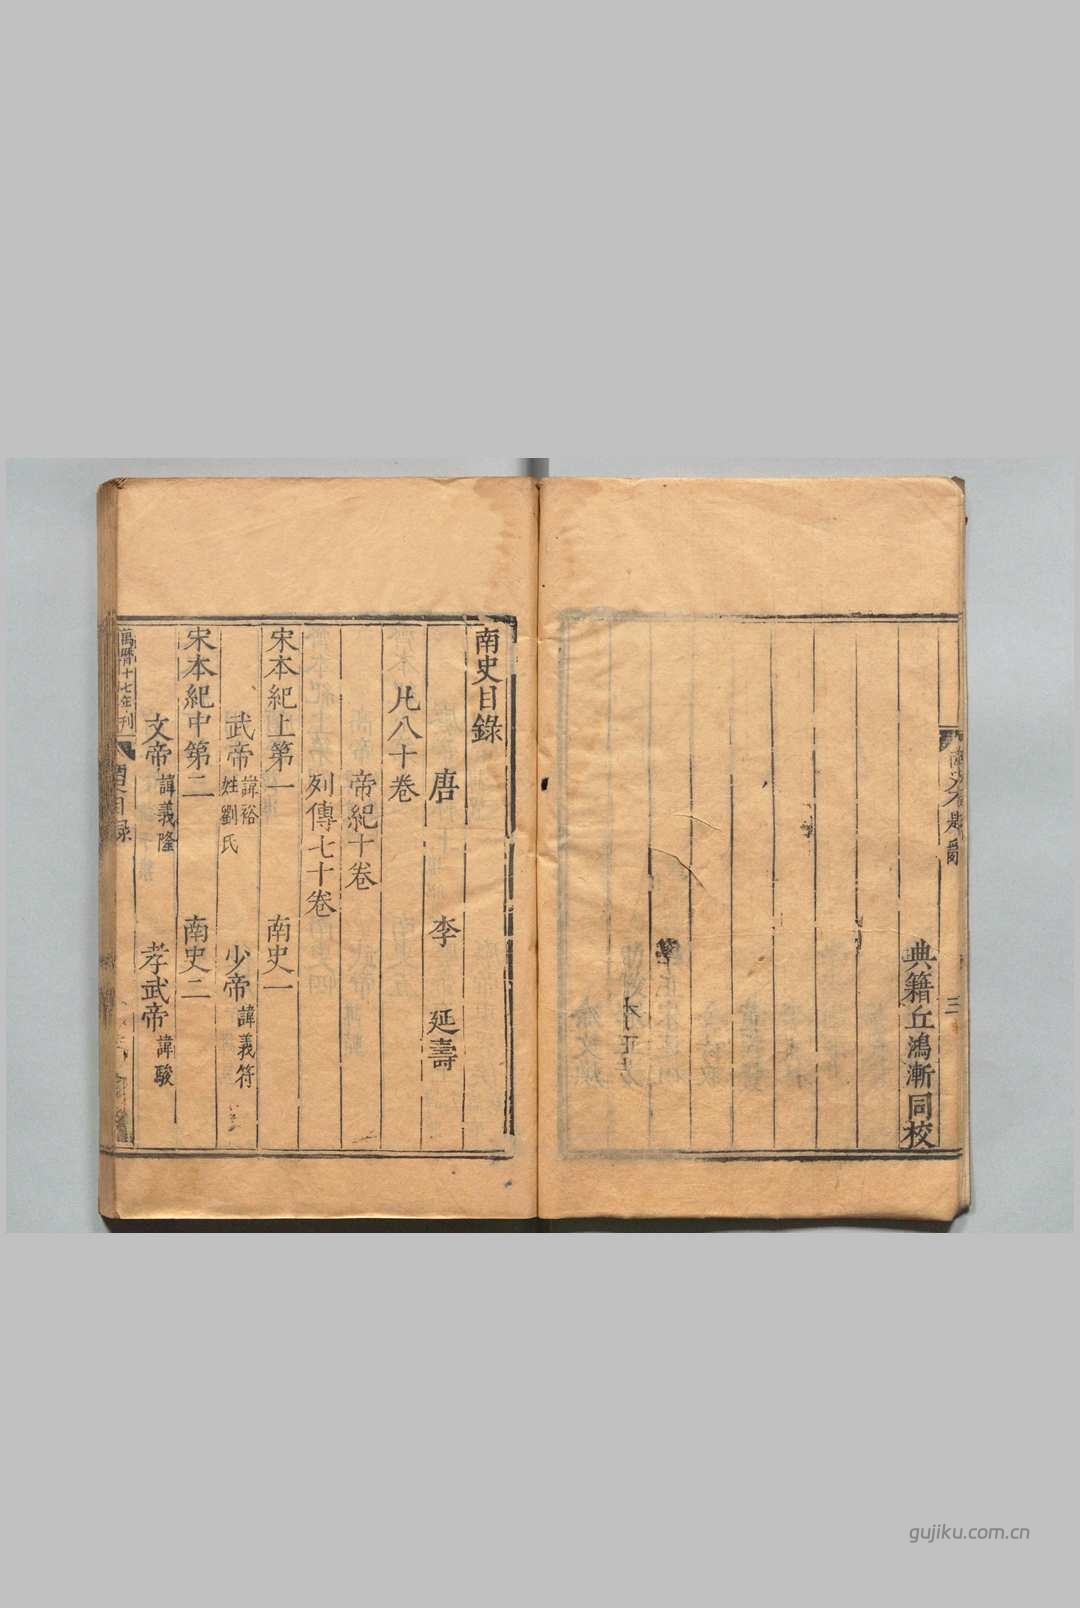 典籍丘鴻漸同校
三
南史目錄
唐 李延壽
凡八十卷
帝紀十卷
列傳七十卷
宋本紀上第一 南史一
武帝 諱裕 姓劉氏 少帝 諱義符
宋本紀中第二 南史二
文帝 諱義隆 孝武帝 諱駿
萬曆十七年刊
gujiku.com.cn